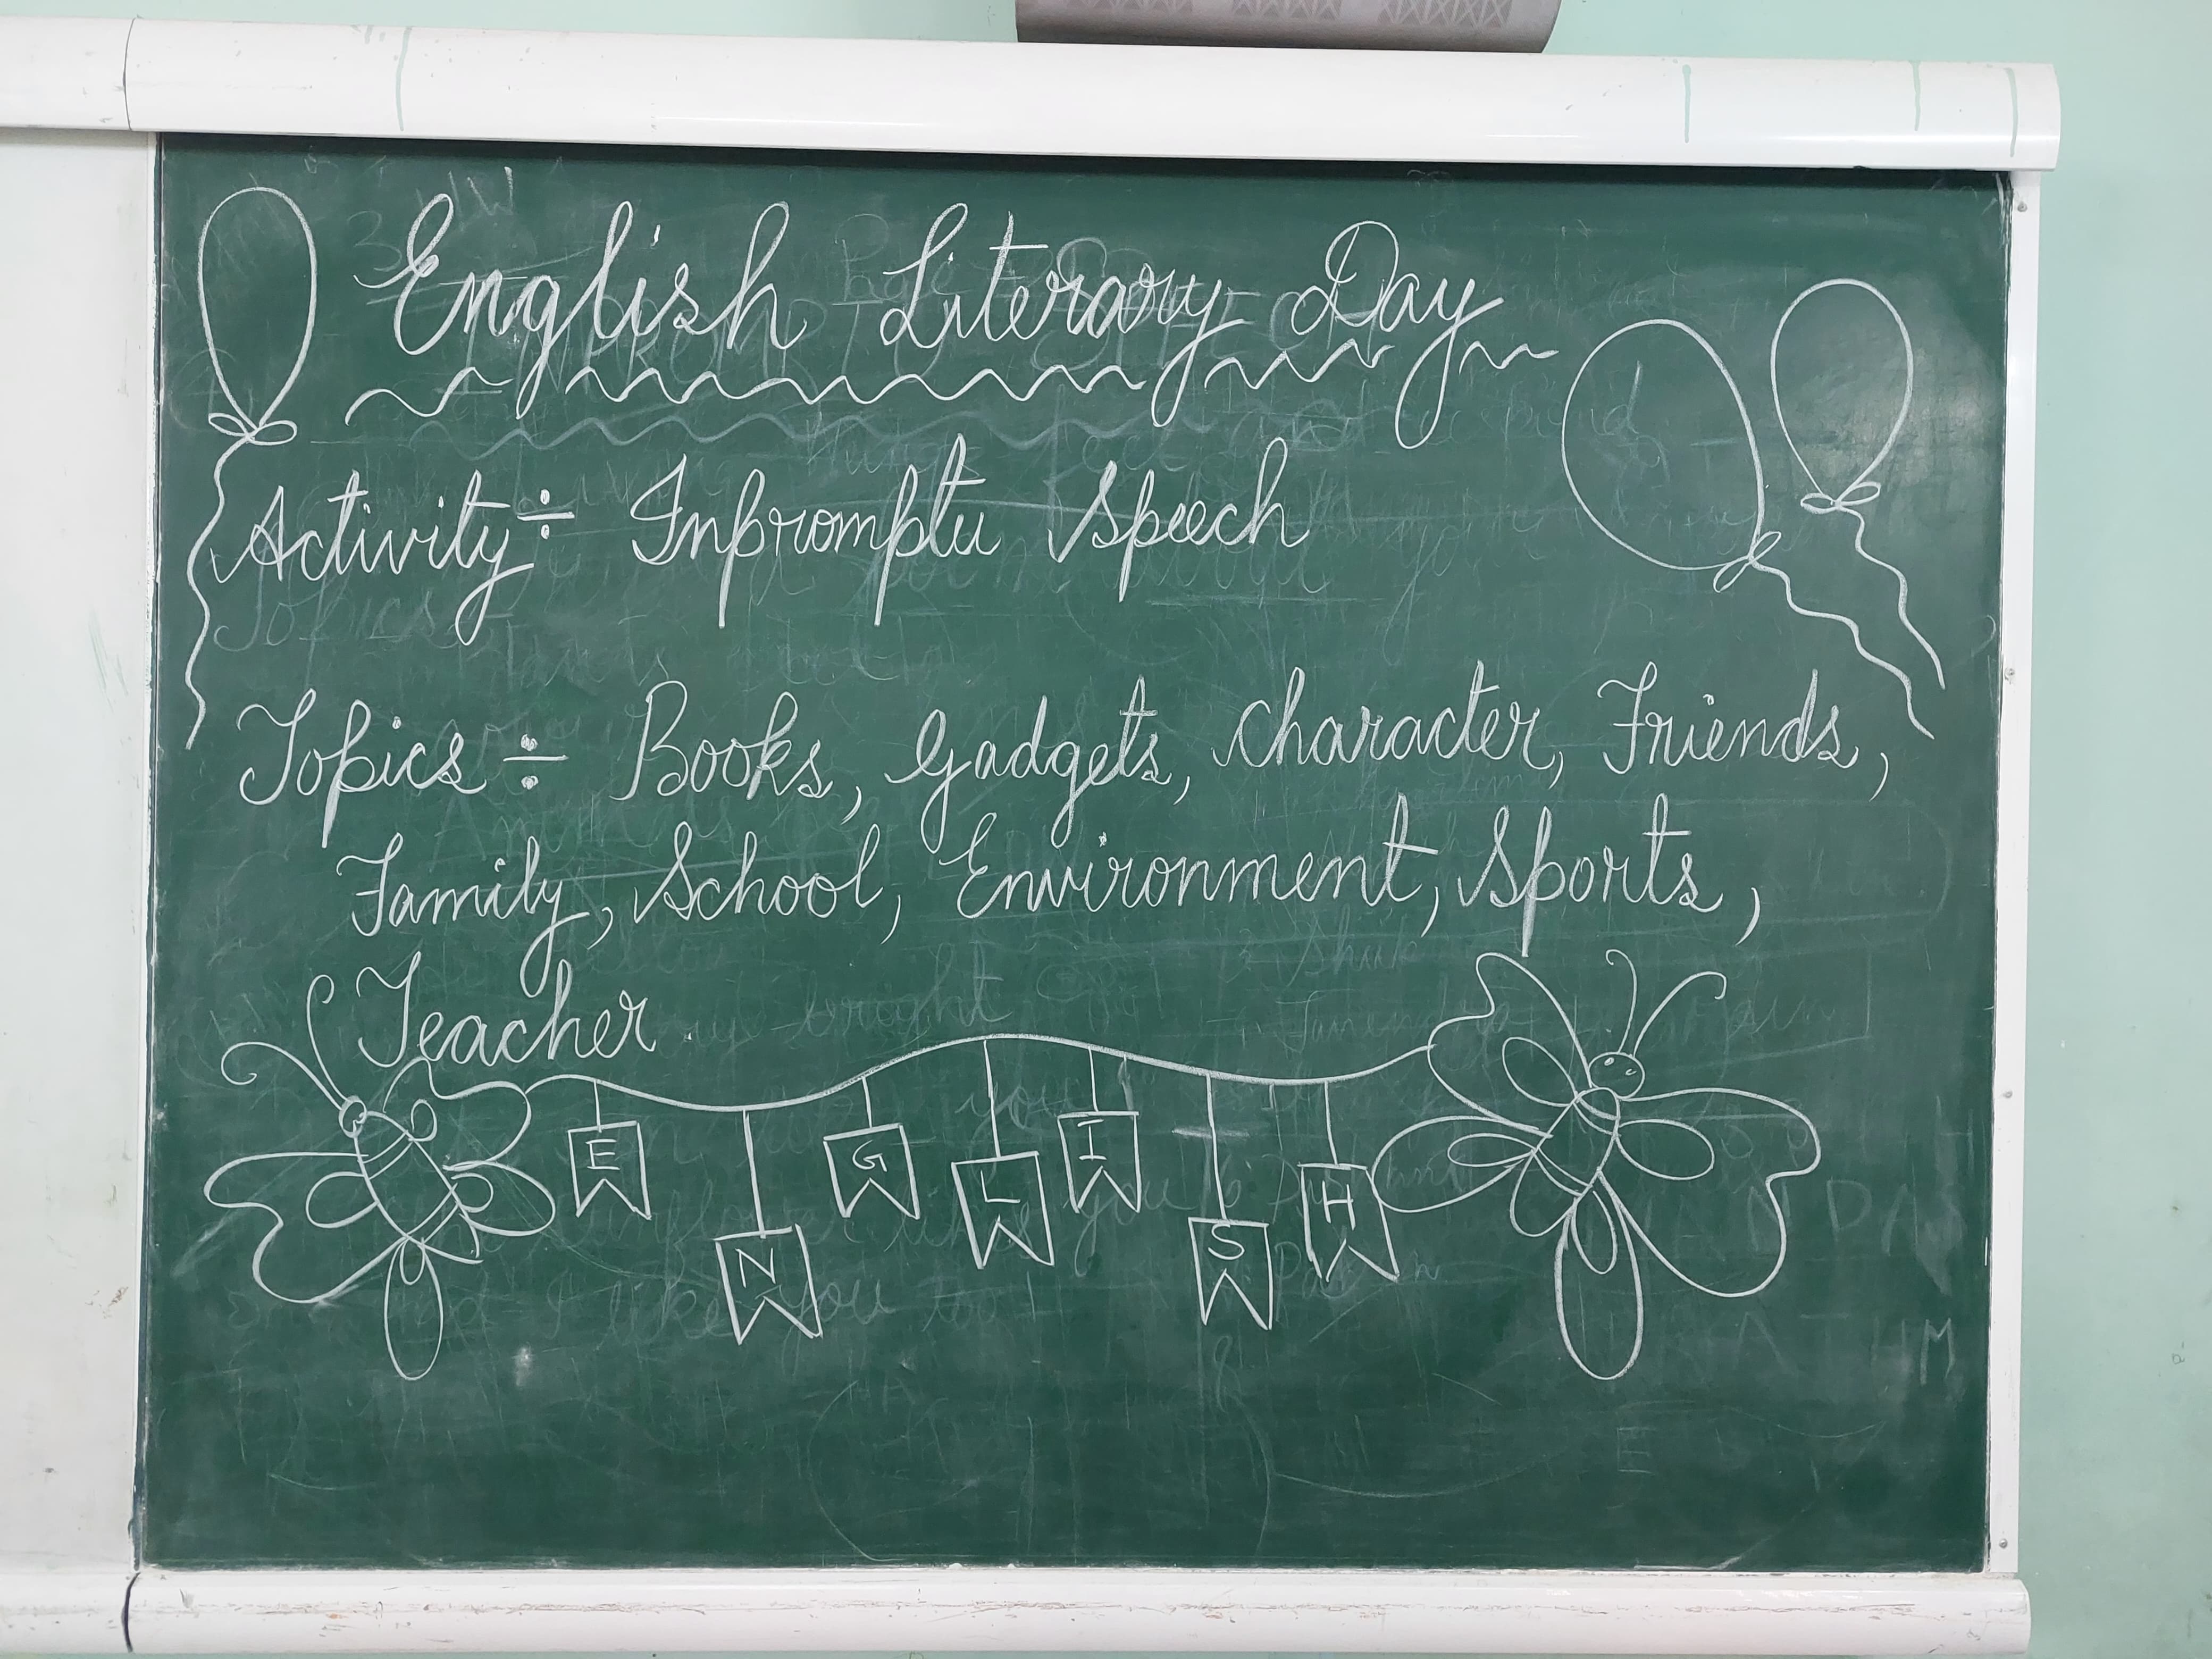 English Literary Day
Activity ÷ Inpromptu Speech
Topics ÷ Books, Gadgets, Character, Friends,
Family, School, Environment, Sports,
Teacher.
E N G L I S H